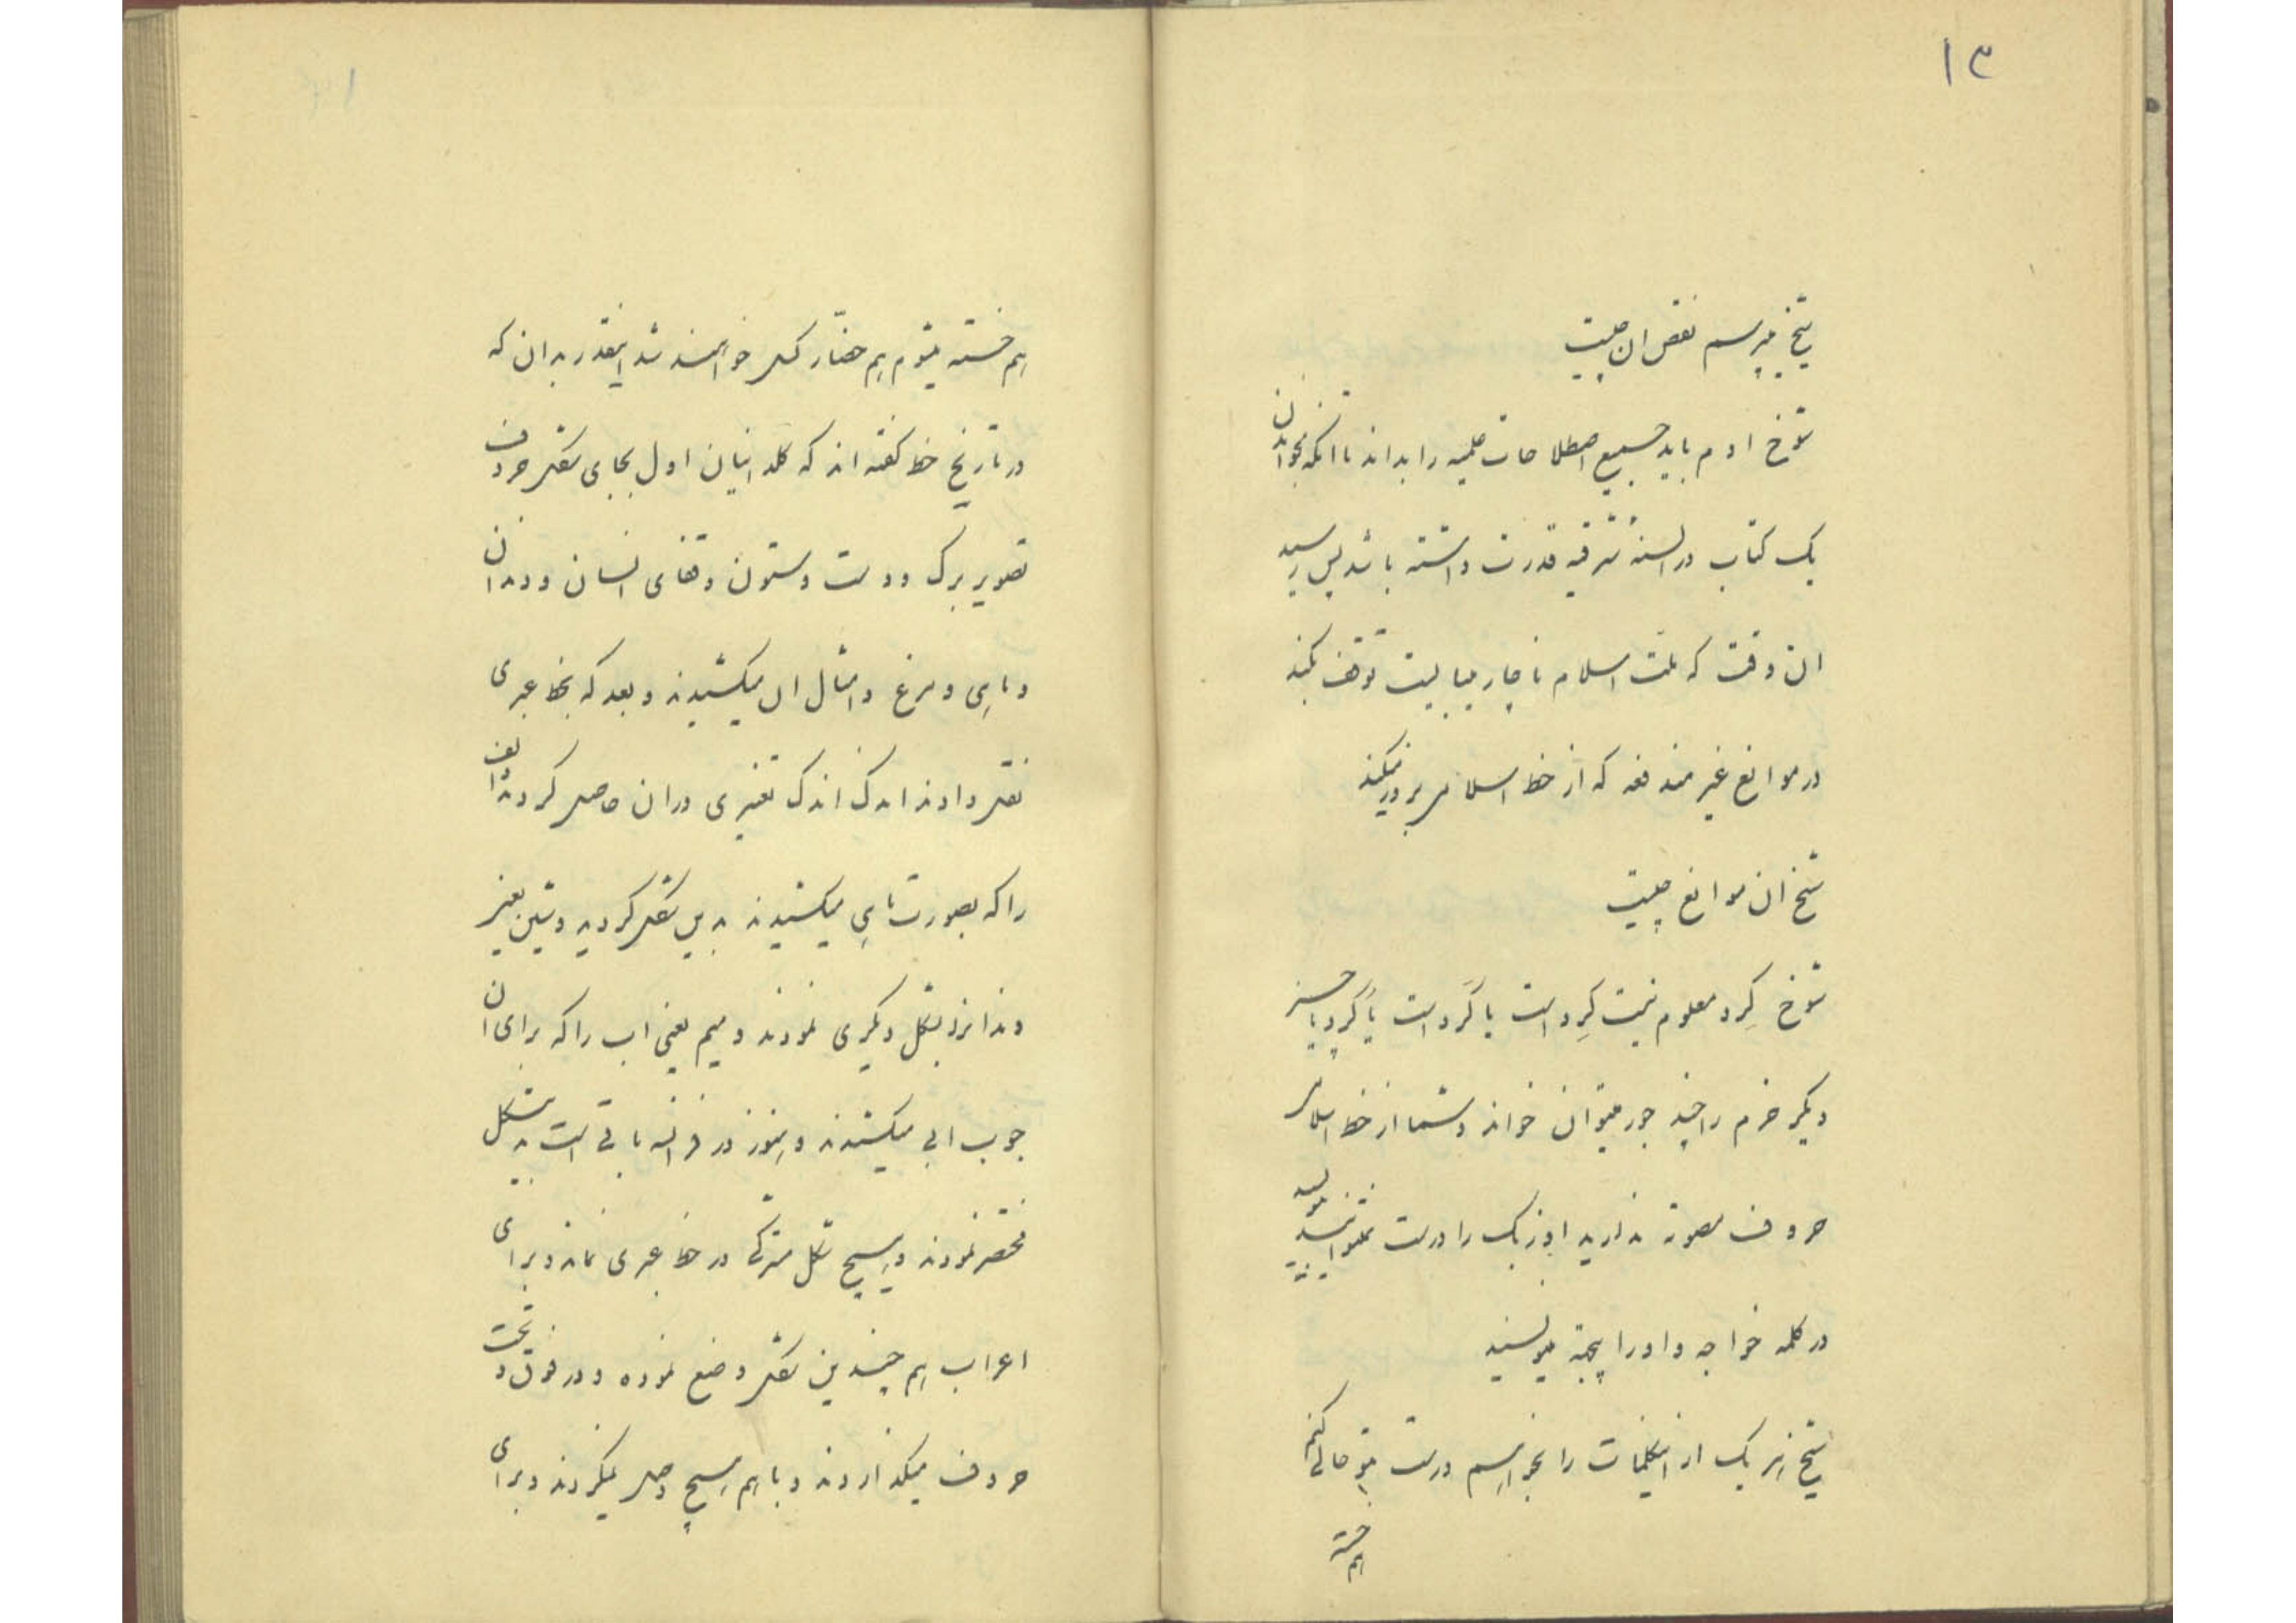 ۱۳
شیخ میپرسم نقص ان چیست
شوخ ادم باید جمیع اصطلاحات علمیه را بداند تا انکه بخواندن
یک کتاب در السنهٔ شرقیه قدرت داشته باشد پس رسید
ان وقت که ملت اسلام ناچار میبایست توقف بکند
در موانع غیر مندفعه که از خط اسلام بروز میکند
شیخ ان موانع چیست
شوخ کرد معلوم نیست کِرد است یا کَرد است یا کُرد یا چیز
دیکر خرم را چند جور میتوان خواند و شما از خط اسلام
حروف مصوته ندارید اوزبک را درست نمیتوانید بنویسید
در کلمه خواجه واو را بچه مینویسید
شیخ هر یک از اینکلمات را بخواهم درست بتو حالی کنم
هم خسته
هم خسته میشوم هم حضّار کسل خواهند شد اینقدر بدان که
در تاریخ خط کفته اند که کلدانیان اول بجای شکل حروف
تصویر برک و دست و ستون و قفای انسان و دندان
و ماهی و مرغ و امثال ان میکشیدند و بعد که بخط عبری
نقل دادند اندک اندک تغییری در ان حاصل کردند الف
را که بصورت میکشیدند بدین شکل کردند و شین یعنی
دندانرا بشکل دیکری نمودند و میم یعنی اب را که برای ان
جوب ابی میکشیدند و هنوز در فرانسه باقی است بدین شکل
مختصر نمودند و هیچ شکل مشترکی در خط عبری نماند و برای
اعراب هم چندین شکل وضع نموده و در فوق و تحت
حروف میکذاردند و با هم هیچ وصل نمیکردند و برای